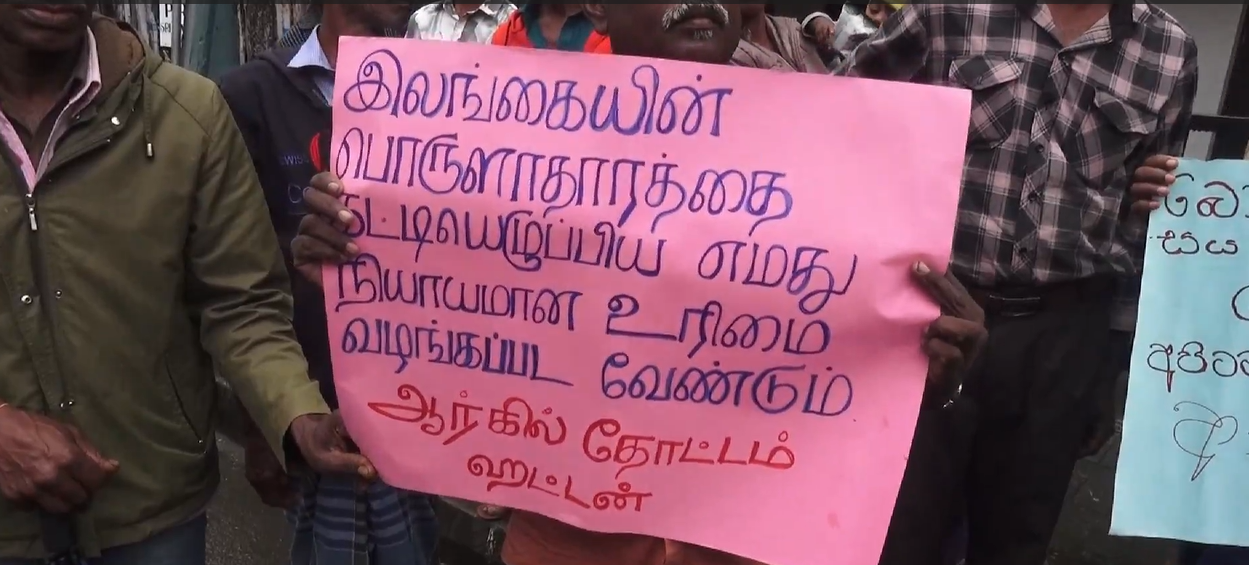 இலங்கையின்
பொருளாதாரத்தை
கட்டியெழுப்பிய எமது
நியாயமான உரிமை
வழங்கப்பட வேண்டும்
ஆர்கில் தோட்டம்
ஹட்டன்
සය
අපිට